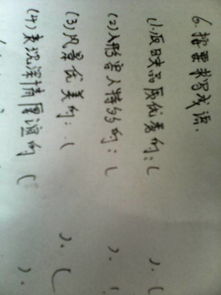 6.按要求写成语.
(1)反映品质优秀的:( ).(
(2)形容人特多的:( ).(
(3)风景优美的:( ).(
(4)表现深情厚谊的( ).